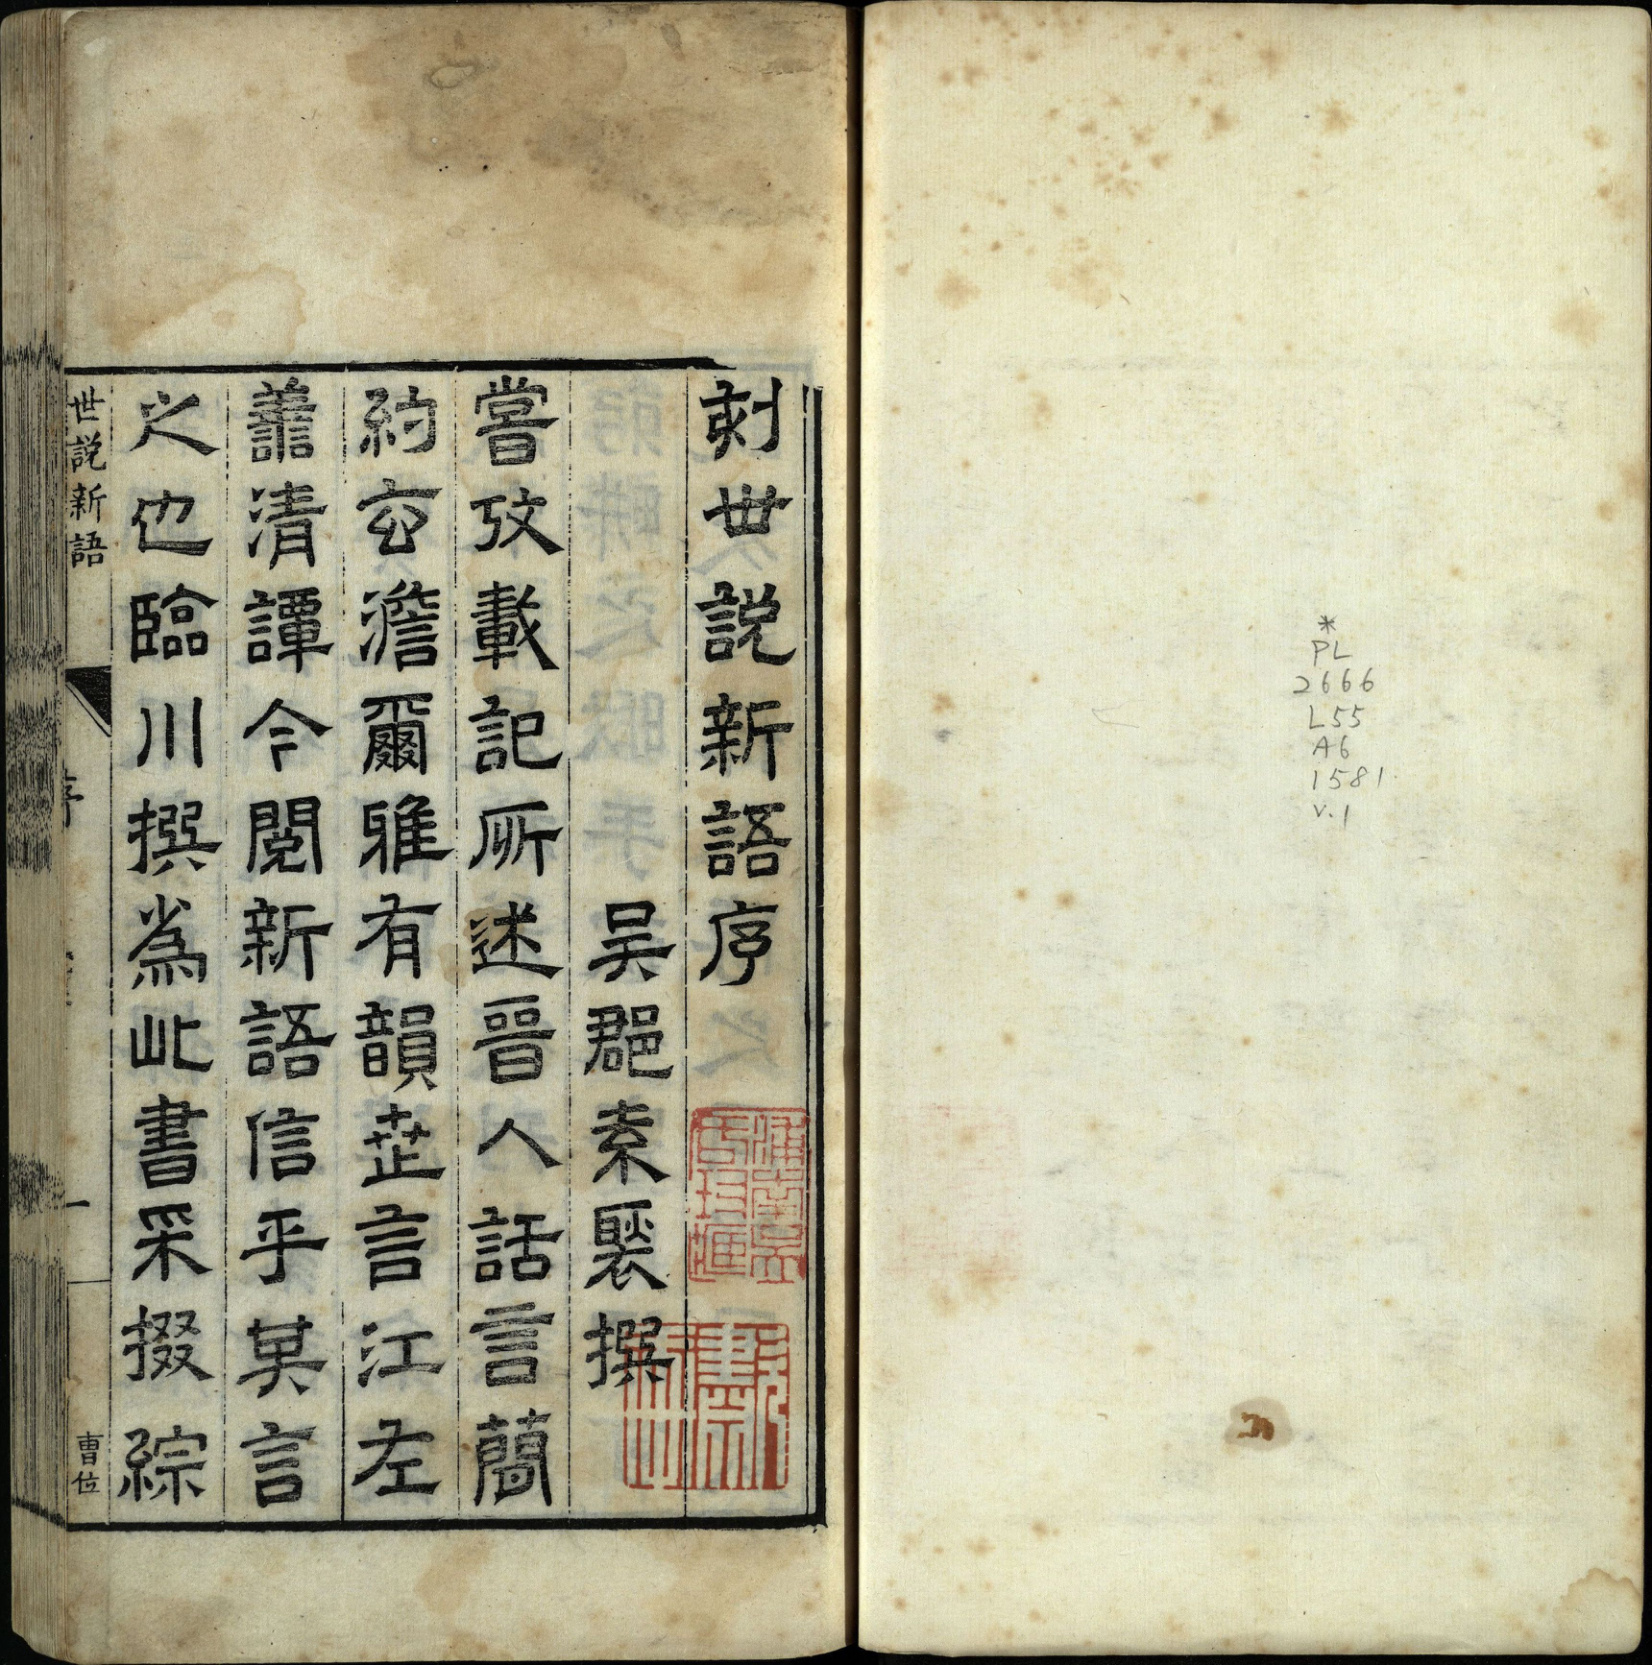 刻世説新語序
吴郡袁褧撰
嘗攷載記所述晉人話言簡
約玄澹爾雅有韻世言江左
善清譚今閱新語信乎其言
之也臨川撰為此書采掇綜
世説新語
序
一
曹位
*
PL
2666
L55
A6
1581
v.1